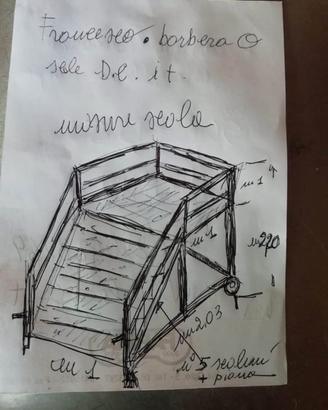 Francesco. barbera @
sole D.e. it.
misure scala
m 1
m 1
m 2,03
m 1
n° 5 scalini
+ piano